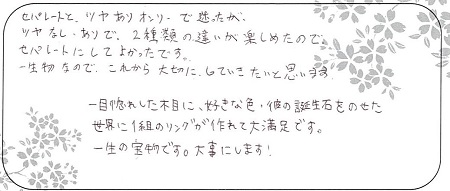 セパレートと、ツヤありオンリーで迷ったが、
ツヤなし・ありで、2種類の違いが楽しめたので、
セパレートにしてよかったです。
一生物なので、これから大切にしていきたいと思います
一目惚れした木目に、好きな色・彼の誕生石をのせた
世界に1組のリングが作れて大満足です。
一生の宝物です。大事にします!